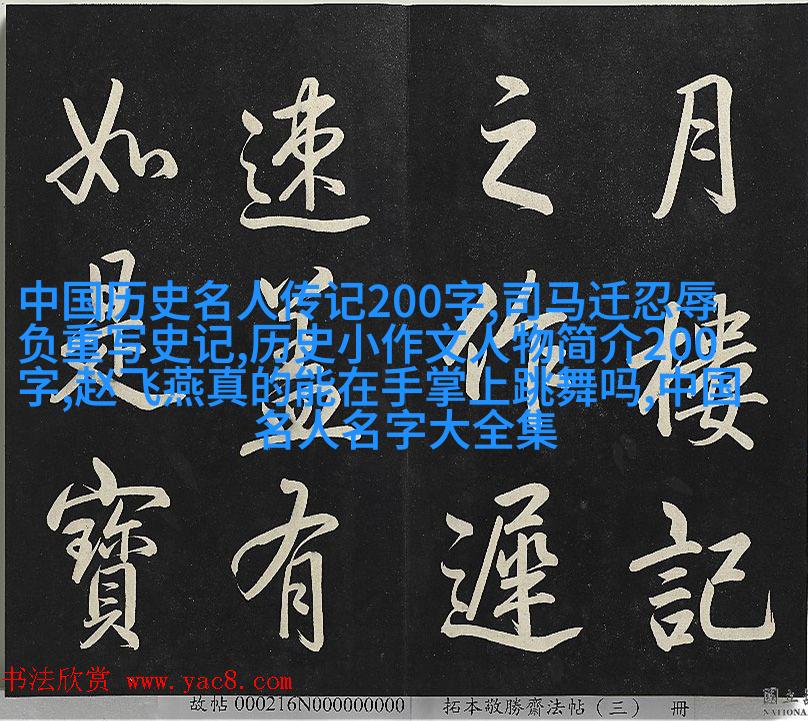 月樓記
之作遲
速盖有
如是寶
中国历史名人传记200字,司马迁忍辱
负重写史记,历史小作文人物简介200
字,赵飞燕真的能在手掌上跳舞吗,中国
名人名字大全集
书法欣赏 www.yac8.com
故帖 000216N000000000 拓本敬勝齋法帖（三） 冊
國立
NATIONA